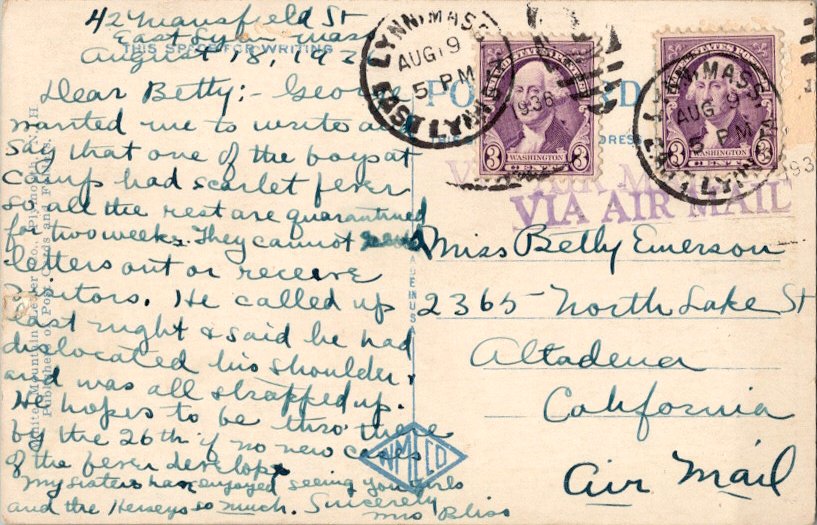 42 Mansfield St
East Lynn Mass
THIS SPACE FOR WRITING
August 18, 193
Dear Betty:- George
wanted me to write and
say that one of the boys at
camp had scarlet fever
so all the rest are quarantined
for two weeks. They cannot send
letters out or receive
visitors. He called up
last night & said he had
dislocated his shoulder
and was all strapped up.
He hopes to be thro' there
by the 26th if no new cases
of the fever develope
My sisters have enjoyed seeing you girls
and the Herseys so much. Sincerely
Mrs Bliss
White Mountain Leather Co., Plymouth, N. H.
Publishers of Post Cards and
MADE IN U.S.A.
WMLCO
LYNN, MASS.
AUG 19
5 PM
1936
EAST LYNN STA.
UNITED STATES POSTAGE
3 WASHINGTON 3
LYNN, MASS.
AUG 19
5 PM
193
EAST LYNN STA.
UNITED STATES POSTAGE
3 WASHINGTON 3
PO D
VIA AIR MAIL
VIA AIR MAIL
Miss Betty Emerson
2365 North Lake St
Altadena
California
Air Mail